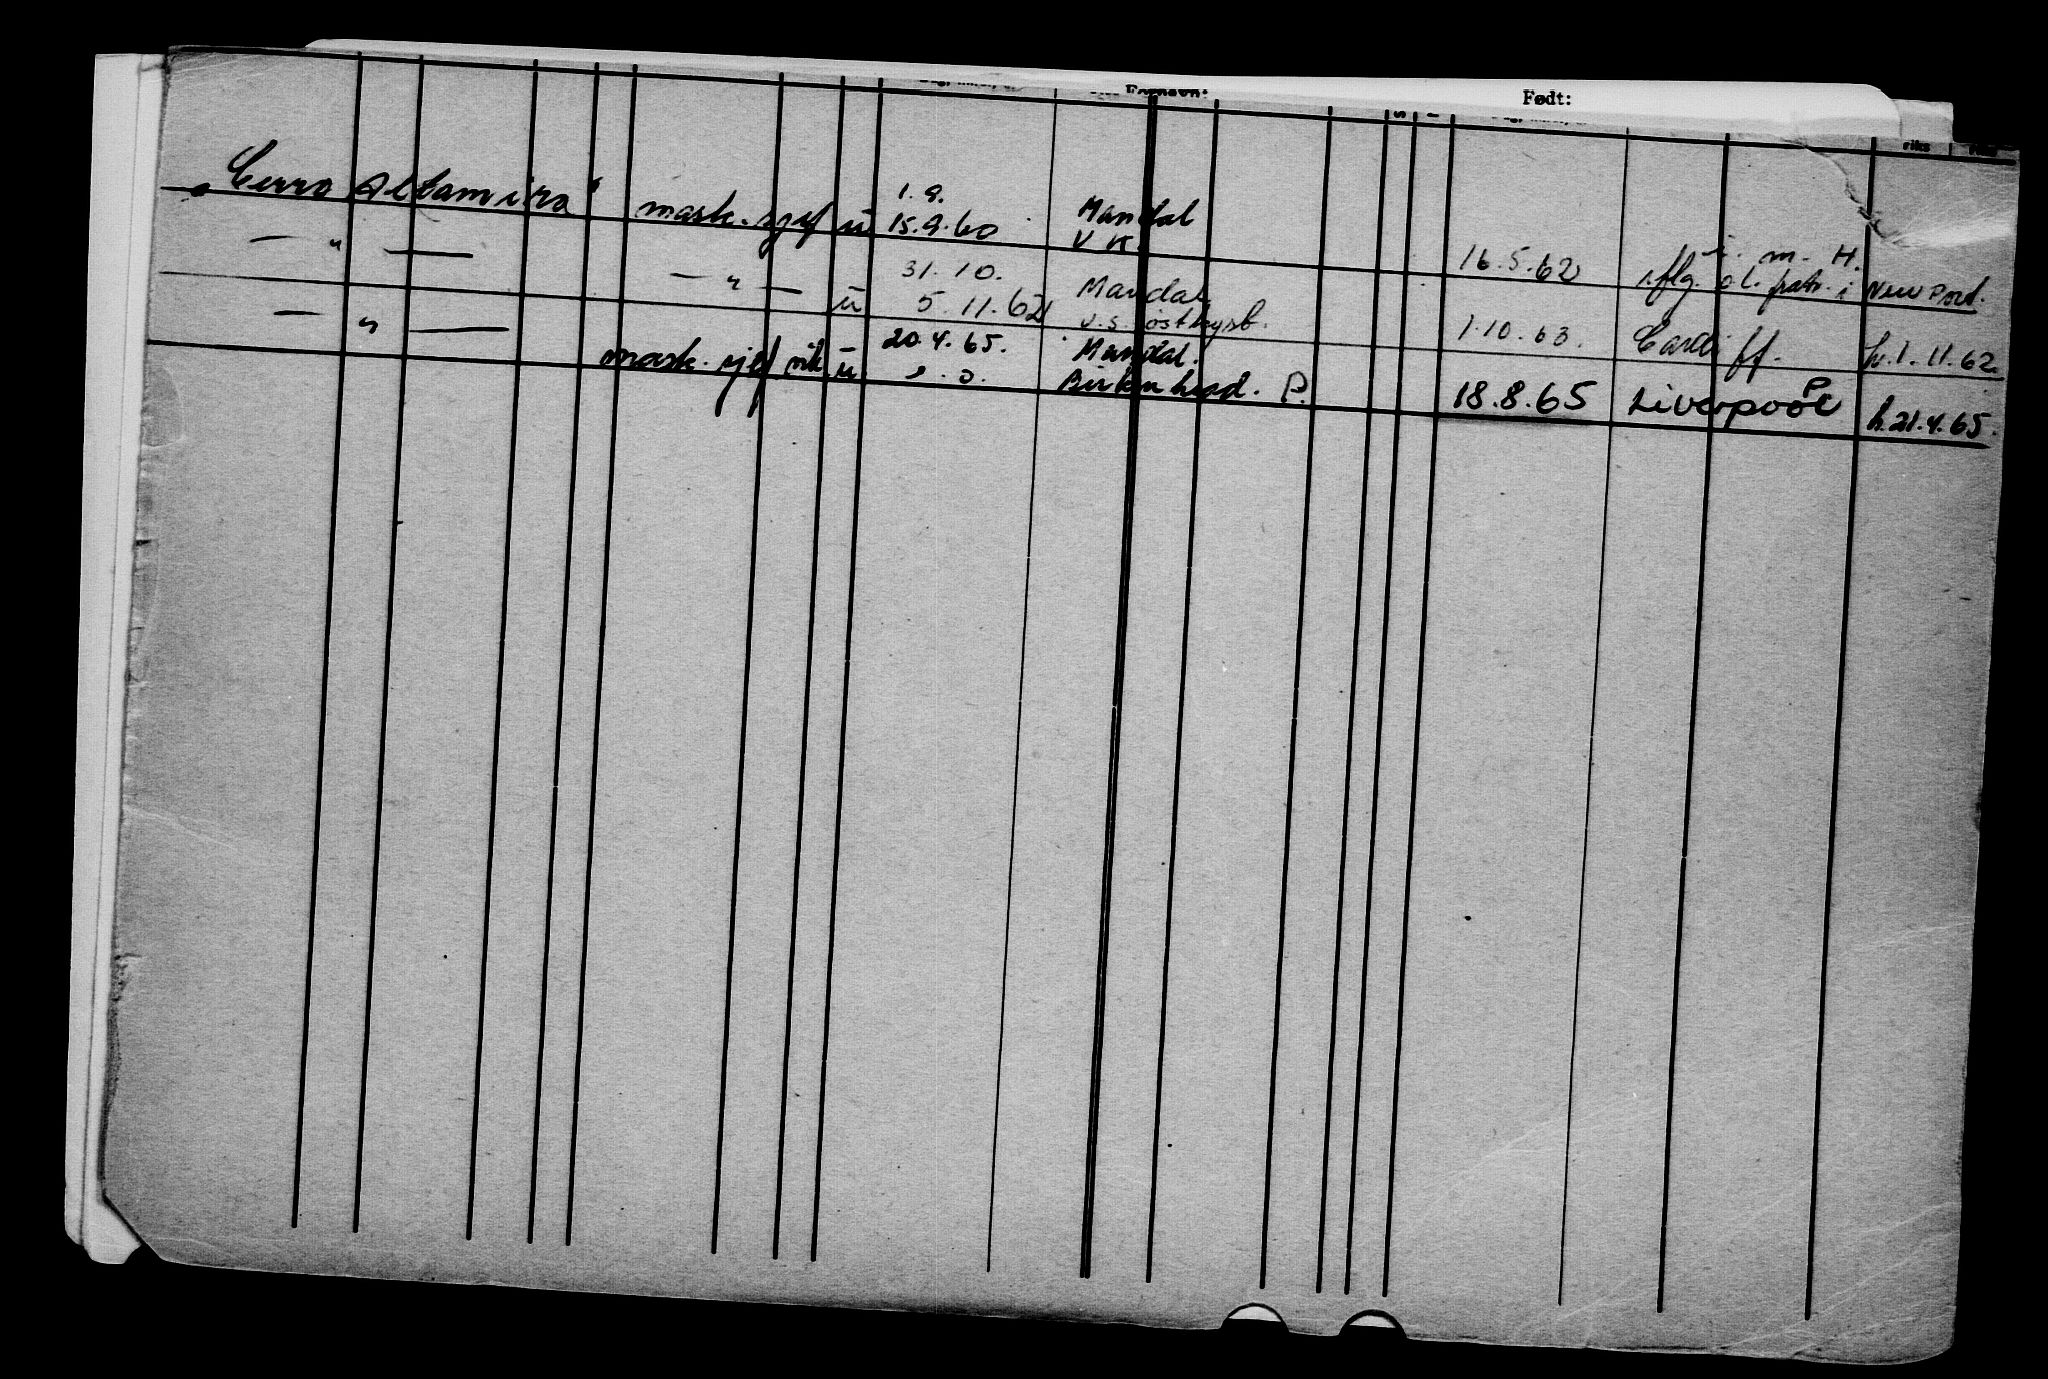 Fornavn:
Født:
riks
1.9.
„Cerro Altamira" mask. sjef u 15.9.60 Mandal
V K. 16.5.62 i. m. H.
iflg. ol. patr. i New Port.
— " — — " — 31.10. Mandal
u 5.11.62 U.S. østkyst. 1.10.63. Cardiff. h. 1.11.62.
— " — 20.4.65. Mandal.
mask. sjef vik. u s.d. Birkenhead. P. 18.8.65 Liverpool P h. 21.4.65.